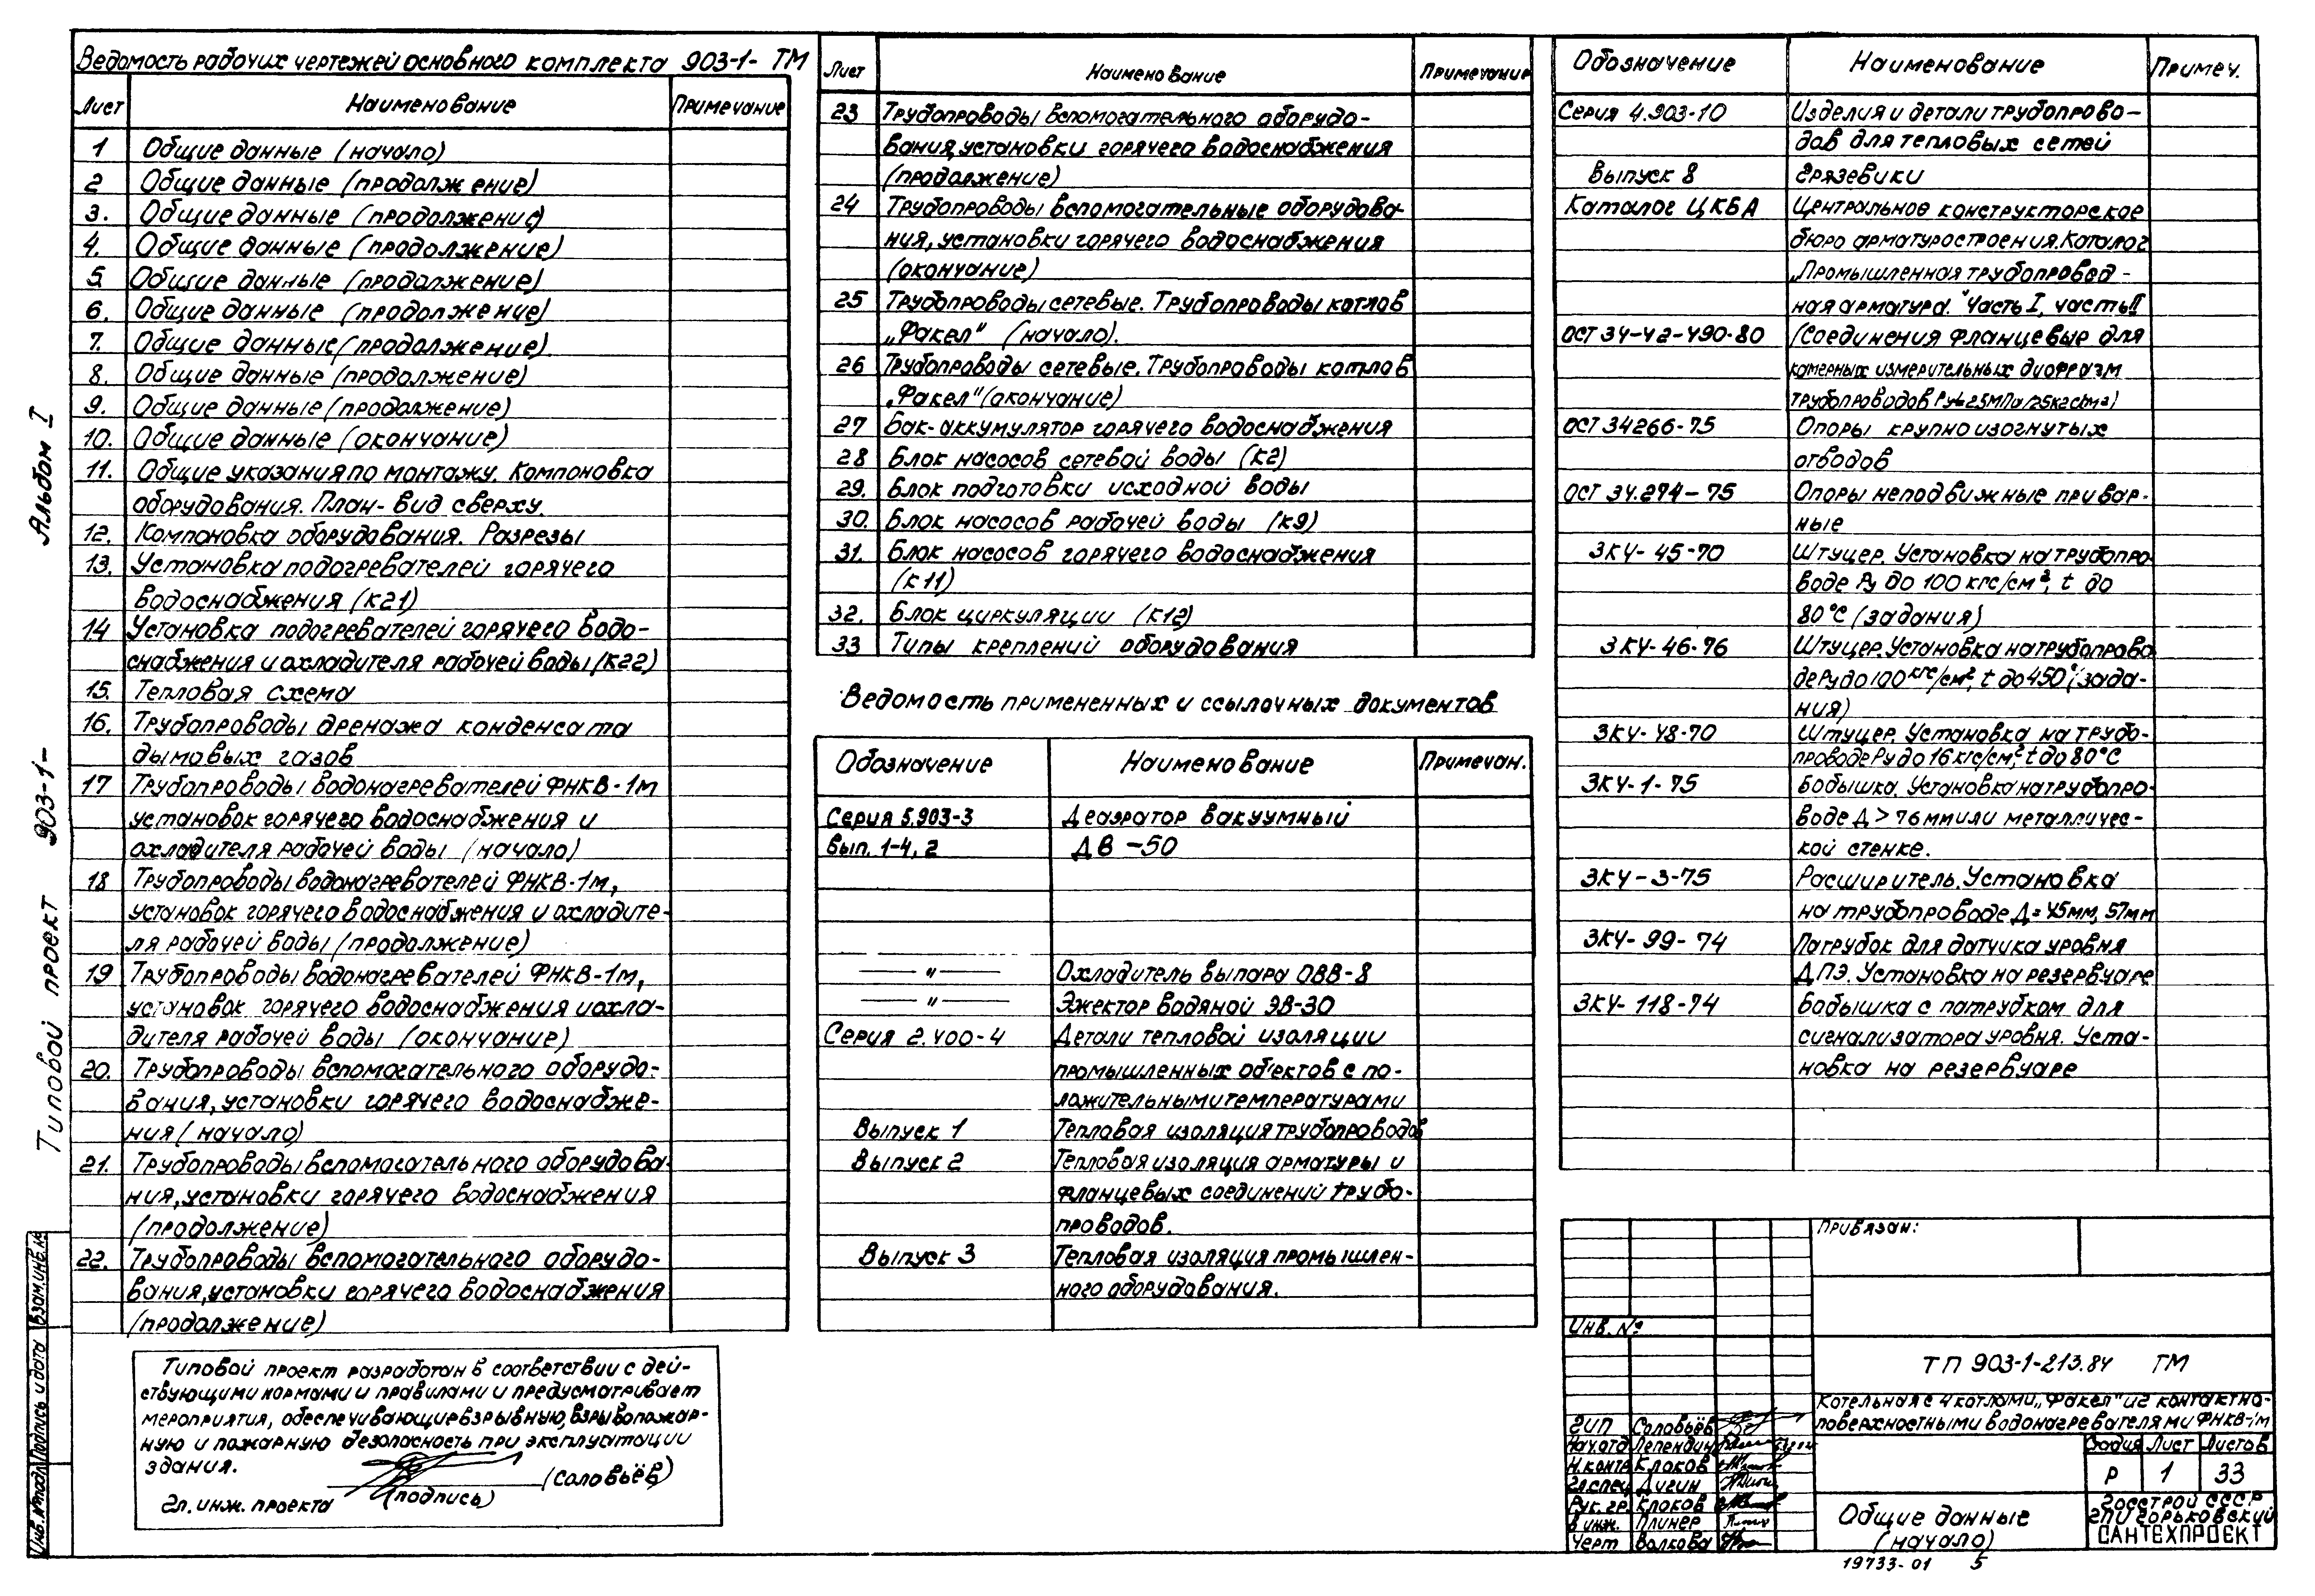 Ведомость рабочих чертежей основного комплекта 903-1- ТМ
Лист Наименование Примечание
1 Общие данные (начало)
2 Общие данные (продолжение)
3. Общие данные (продолжение)
4. Общие данные (продолжение)
5. Общие данные (продолжение)
6. Общие данные (продолжение)
7. Общие данные (продолжение)
8. Общие данные (продолжение)
9. Общие данные (продолжение)
10. Общие данные (окончание)
11. Общие указания по монтажу. Компоновка
оборудования. План-вид сверху.
12. Компоновка оборудования. Разрезы
13. Установка подогревателей горячего
водоснабжения (К21)
14 Установка подогревателей горячего водо-
снабжения и охладителя рабочей воды (К22)
15. Тепловая схема
16. Трубопроводы дренажа конденсата
дымовых газов
17 Трубопроводы водонагревателей ФНКВ-1м
установок горячего водоснабжения и
охладителя рабочей воды (начало)
18 Трубопроводы водонагревателей ФНКВ-1м,
установок горячего водоснабжения и охладите-
ля рабочей воды (продолжение)
19 Трубопроводы водонагревателей ФНКВ-1м,
установок горячего водоснабжения и охла-
дителя рабочей воды (окончание)
20. Трубопроводы вспомогательного оборудо-
вания, установки горячего водоснабже-
ния (начало)
21. Трубопроводы вспомогательного оборудова-
ния, установки горячего водоснабжения
(продолжение)
22. Трубопроводы вспомогательного оборудо-
вания, установки горячего водоснабжения
(продолжение)
Типовой проект разработан в соответствии с дей-
ствующими нормами и правилами и предусматривает
мероприятия, обеспечивающие взрывную, взрывопожар-
ную и пожарную безопасность при эксплуатации
здания.
(Соловьёв)
Гл. инж. проекта (подпись)
Лист Наименование Примечание
23 Трубопроводы вспомогательного оборудо-
вания, установки горячего водоснабжения
(продолжение)
24 Трубопроводы вспомогательные оборудова-
ния, установки горячего водоснабжения
(окончание)
25 Трубопроводы сетевые. Трубопроводы котлов
„Факел" (начало).
26 Трубопроводы сетевые. Трубопроводы котлов
„Факел" (окончание)
27 Бак-аккумулятор горячего водоснабжения
28 Блок насосов сетевой воды (К2)
29. Блок подготовки исходной воды
30. Блок насосов рабочей воды (К9)
31. Блок насосов горячего водоснабжения
(К11)
32. Блок циркуляции (К12)
33 Типы креплений оборудования
Ведомость примененных и ссылочных документов
Обозначение Наименование Примечан.
Серия 5.903-3 Деаэратор вакуумный
Вып. 1-4, 2 ДВ-50
— " — Охладитель выпара ОВВ-8
— " — Эжектор водяной ЭВ-30
Серия 2.400-4 Детали тепловой изоляции
промышленных объектов с по-
ложительными температурами
Выпуск 1 Тепловая изоляция трубопроводов
Выпуск 2 Тепловая изоляция арматуры и
фланцевых соединений трубо-
проводов.
Выпуск 3 Тепловая изоляция промышлен-
ного оборудования.
Обозначение Наименование Примеч.
Серия 4.903-10 Изделия и детали трубопрово-
дов для тепловых сетей
Выпуск 8 Грязевики
Каталог ЦКБА Центральное конструкторское
бюро арматуростроения. Каталог
„Промышленная трубопровод-
ная арматура." Часть I, часть II
ОСТ 34-42-490-80 (Соединения фланцевые для
камерных измерительных диафразм
трубопроводов Ру≤2.5МПа/25кгс/см²)
ОСТ 34266-75 Опоры крупно изогнутых
отводов
ОСТ 34.274-75 Опоры неподвижные привар-
ные
ЗК4-45-70 Штуцер. Установка на трубопро-
воде Ру до 100 кгс/см², t до
80°С (задания)
ЗК4-46-76 Штуцер. Установка на трубопрово
де Ру до 100 кгс/см², t до 450° (зада-
ния)
ЗК4-48-70 Штуцер. Установка на трубо-
проводе Ру до 16 кгс/см², t до 80°С
ЗК4-1-75 Бобышка. Установка на трубопро-
воде Д > 76 мм или металличес-
кой стенке.
ЗК4-3-75 Расширитель. Установка
на трубопроводе Д=45мм, 57мм
ЗК4-99-74 Патрубок для датчика уровня
ДПЭ. Установка на резервуаре
ЗК4-118-74 Бобышка с патрубком для
сигнализатора уровня. Уста-
новка на резервуаре
Привязан:
Инв. №
ТП 903-1-213.84 ТМ
Котельная с 4 котлами „Факел" и 2 контактно-
поверхностными водонагревателями ФНКВ-1м
ГИП Соловьёв
Нач.отд Лепендин
Н.контр Клоков
Гл.спец Дигин
Рук. гр. Клоков
В инж. Плинер
Черт Волкова
Стадия Лист Листов
Р 1 33
Общие данные
(начало)
Госстрой СССР
ГПИ Горьковский
САНТЕХПРОЕКТ
19733-01 5
Альбом I
Типовой проект 903-1-
Взам.инв.№
Подпись и дата
Инв.№подл